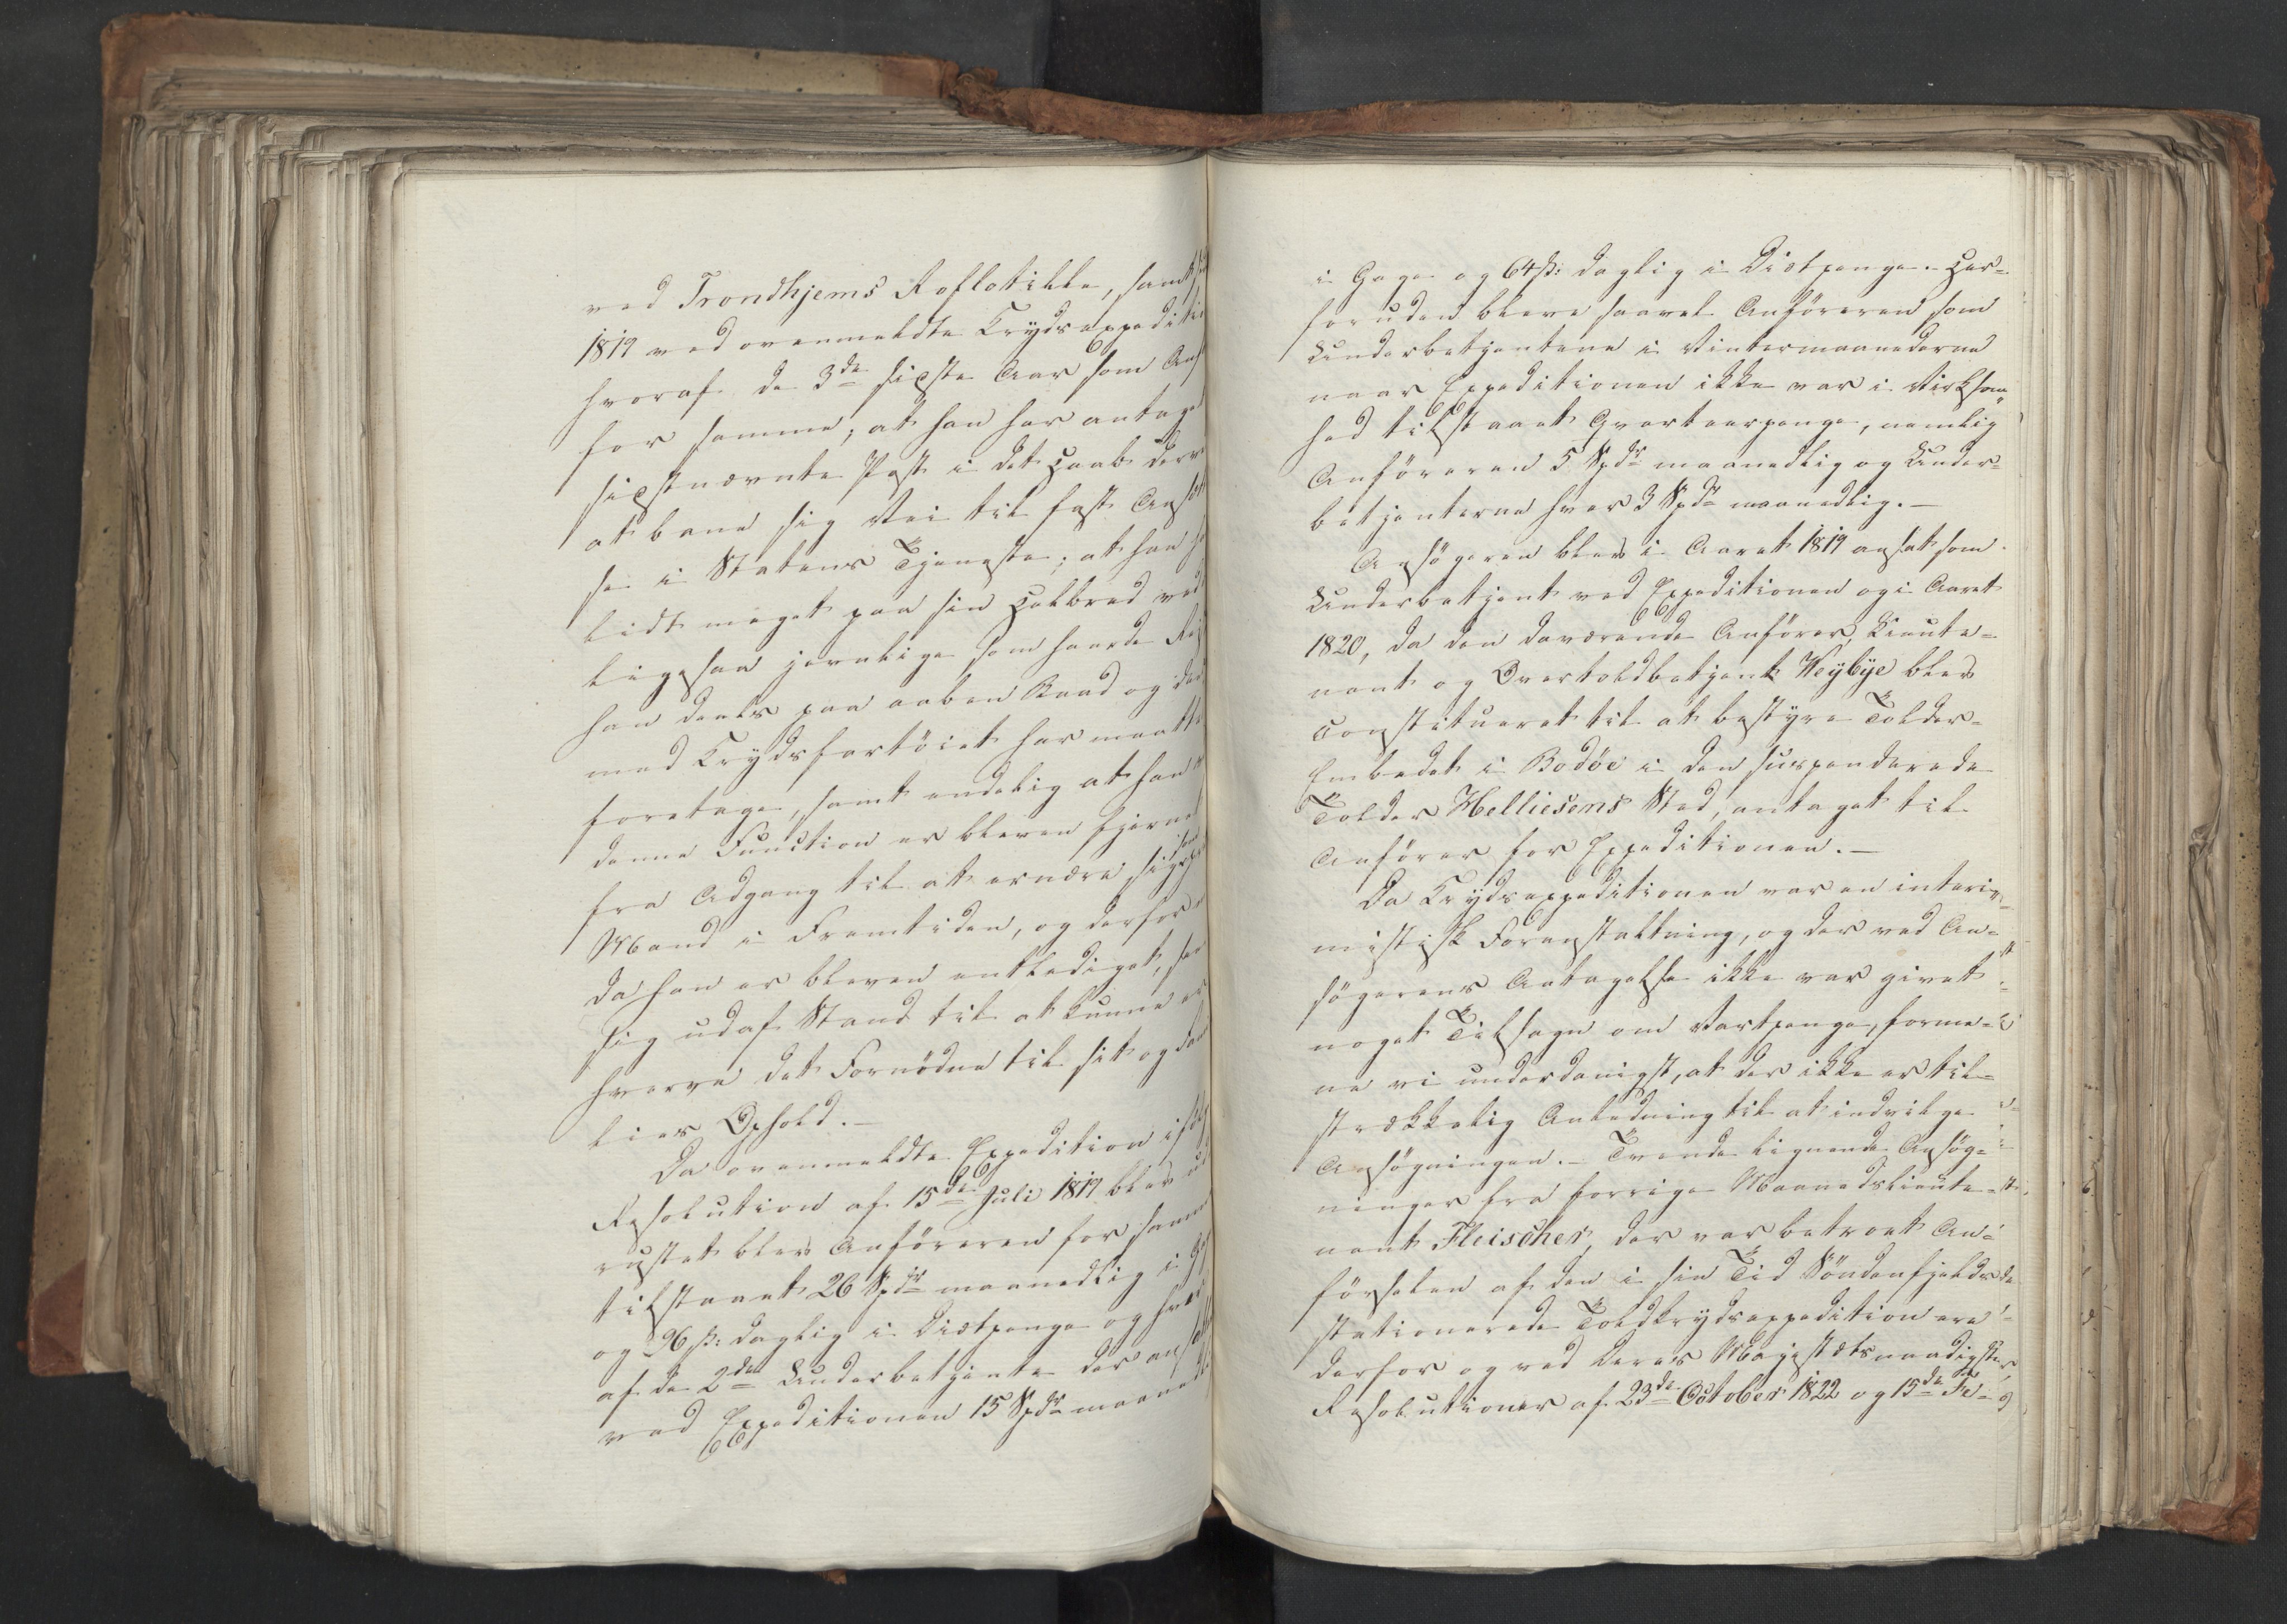 ved Trondhjems Roflotille, samt
1819 ved ovenmeldte Krydsexpediti
hvoraf de 3de sidste Aar som Anf
for samme; at han har antaget
sidstnævnte Post i det Haab derv
at bane sig Vei til fast Ansæt
se i Statens Tjeneste; at han ha
lidt meget paa sin Helbred ved
ligesaa jevnlige som haarde Rei
han deels paa aaben Baad og deel
med Krydsfartöiet har maatte
foretage, samt endelig at han
denne Function er bleven fjernet
fra Adgang til at ernære sig som
Mand i Fremtiden, og derfor
da han er bleven entlediget, seer
sig udaf Stand til at kunne er
hverve det Fornödne til sit og
lies Ophold.—
Da ovenmeldte Expedition ifölge
Resolution af 15de Juli 1819 blev ud
rustet blev Anföreren for samme
tilstaaet 26 Spdr maanedlig i G
og 96 ß: daglig i Diætpenge og hver
af de 2de Underbetjente der ansatt
ved Expeditionen 15 Spdr maaned
i Gage og 64 ß: daglig i Diætpenge. Her=
foruden bleve saavel Anföreren som
Underbetjentene i Vintermaanederne
naar Expeditionen ikke var i Virksom
hed tilstaaet Qvarteerpenge, nemlig
Anföreren 5 Spdr maanedlig og Under=
betjenterne hver 3 Spdr maanedlig.—
Ansögeren blev i Aaret 1819 ansat som
Underbetjent ved Expeditionen og i Aaret
1820, da den daværende Anförer, Lieute=
nant og Overtoldbetjent Weybye blev
constitueret til at bestyre Tolder=
Embedet i Bodöe i den suspenderede
Tolder Helliesens Sted, antaget til
Anförer for Expeditionen.—
Da Krydsexpeditionen var en interi=
mistisk Foranstaltning, og der ved An=
sögerens Antagelse ikke var givet
noget Tilsagn om Vartpenge, forme=
ne vi underdanigst, at der ikke er til=
strækkelig Anledning til at indvilge
Ansögningen.— Tvende lignende Ansög=
ninger fra forrige Maanedslieute=
nant Fleischer, der var betroet An=
förselen af den i sin Tid Söndenfjelds
stationerede Toldkrydsexpedition ere
derfor og ved Deres Majestæts naadigste
Resolutioner af 23de October 1822 og 15de Fe=